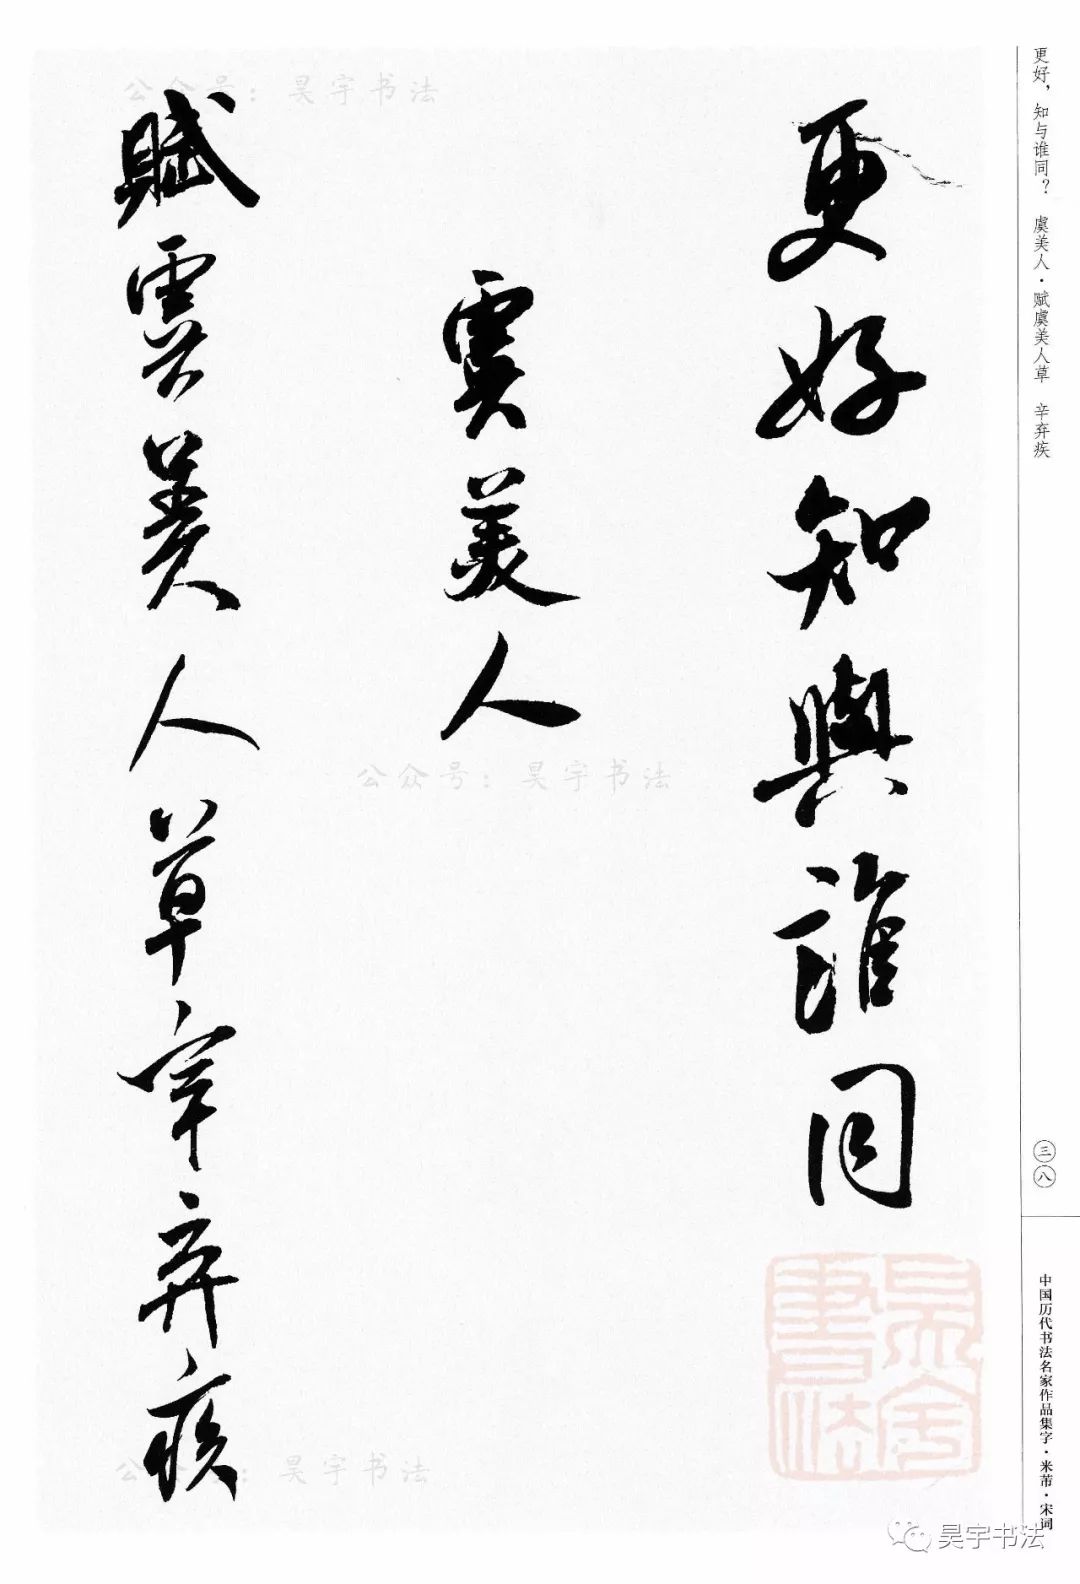 更好知與誰同
虞美人
賦虞美人草辛弃疾
更好，知与谁同？ 虞美人·赋虞美人草 辛弃疾
三八
中国历代书法名家作品集字·米芾·宋词
公众号：昊宇书法
公众号：昊宇书法
公众号：昊宇书法
昊宇书法
昊宇书法